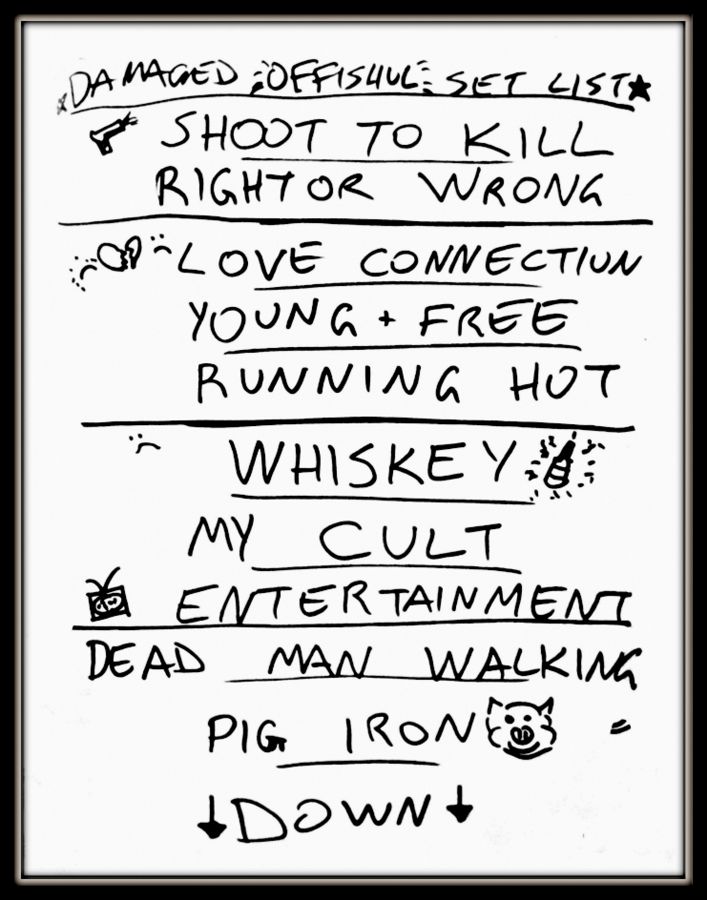 DAMAGED OFFISHUL SET LIST
SHOOT TO KILL
RIGHT OR WRONG
LOVE CONNECTIUN
YOUNG + FREE
RUNNING HOT
WHISKEY
MY CULT
ENTERTAINMENT
DEAD MAN WALKING
PIG IRON
↓DOWN↓